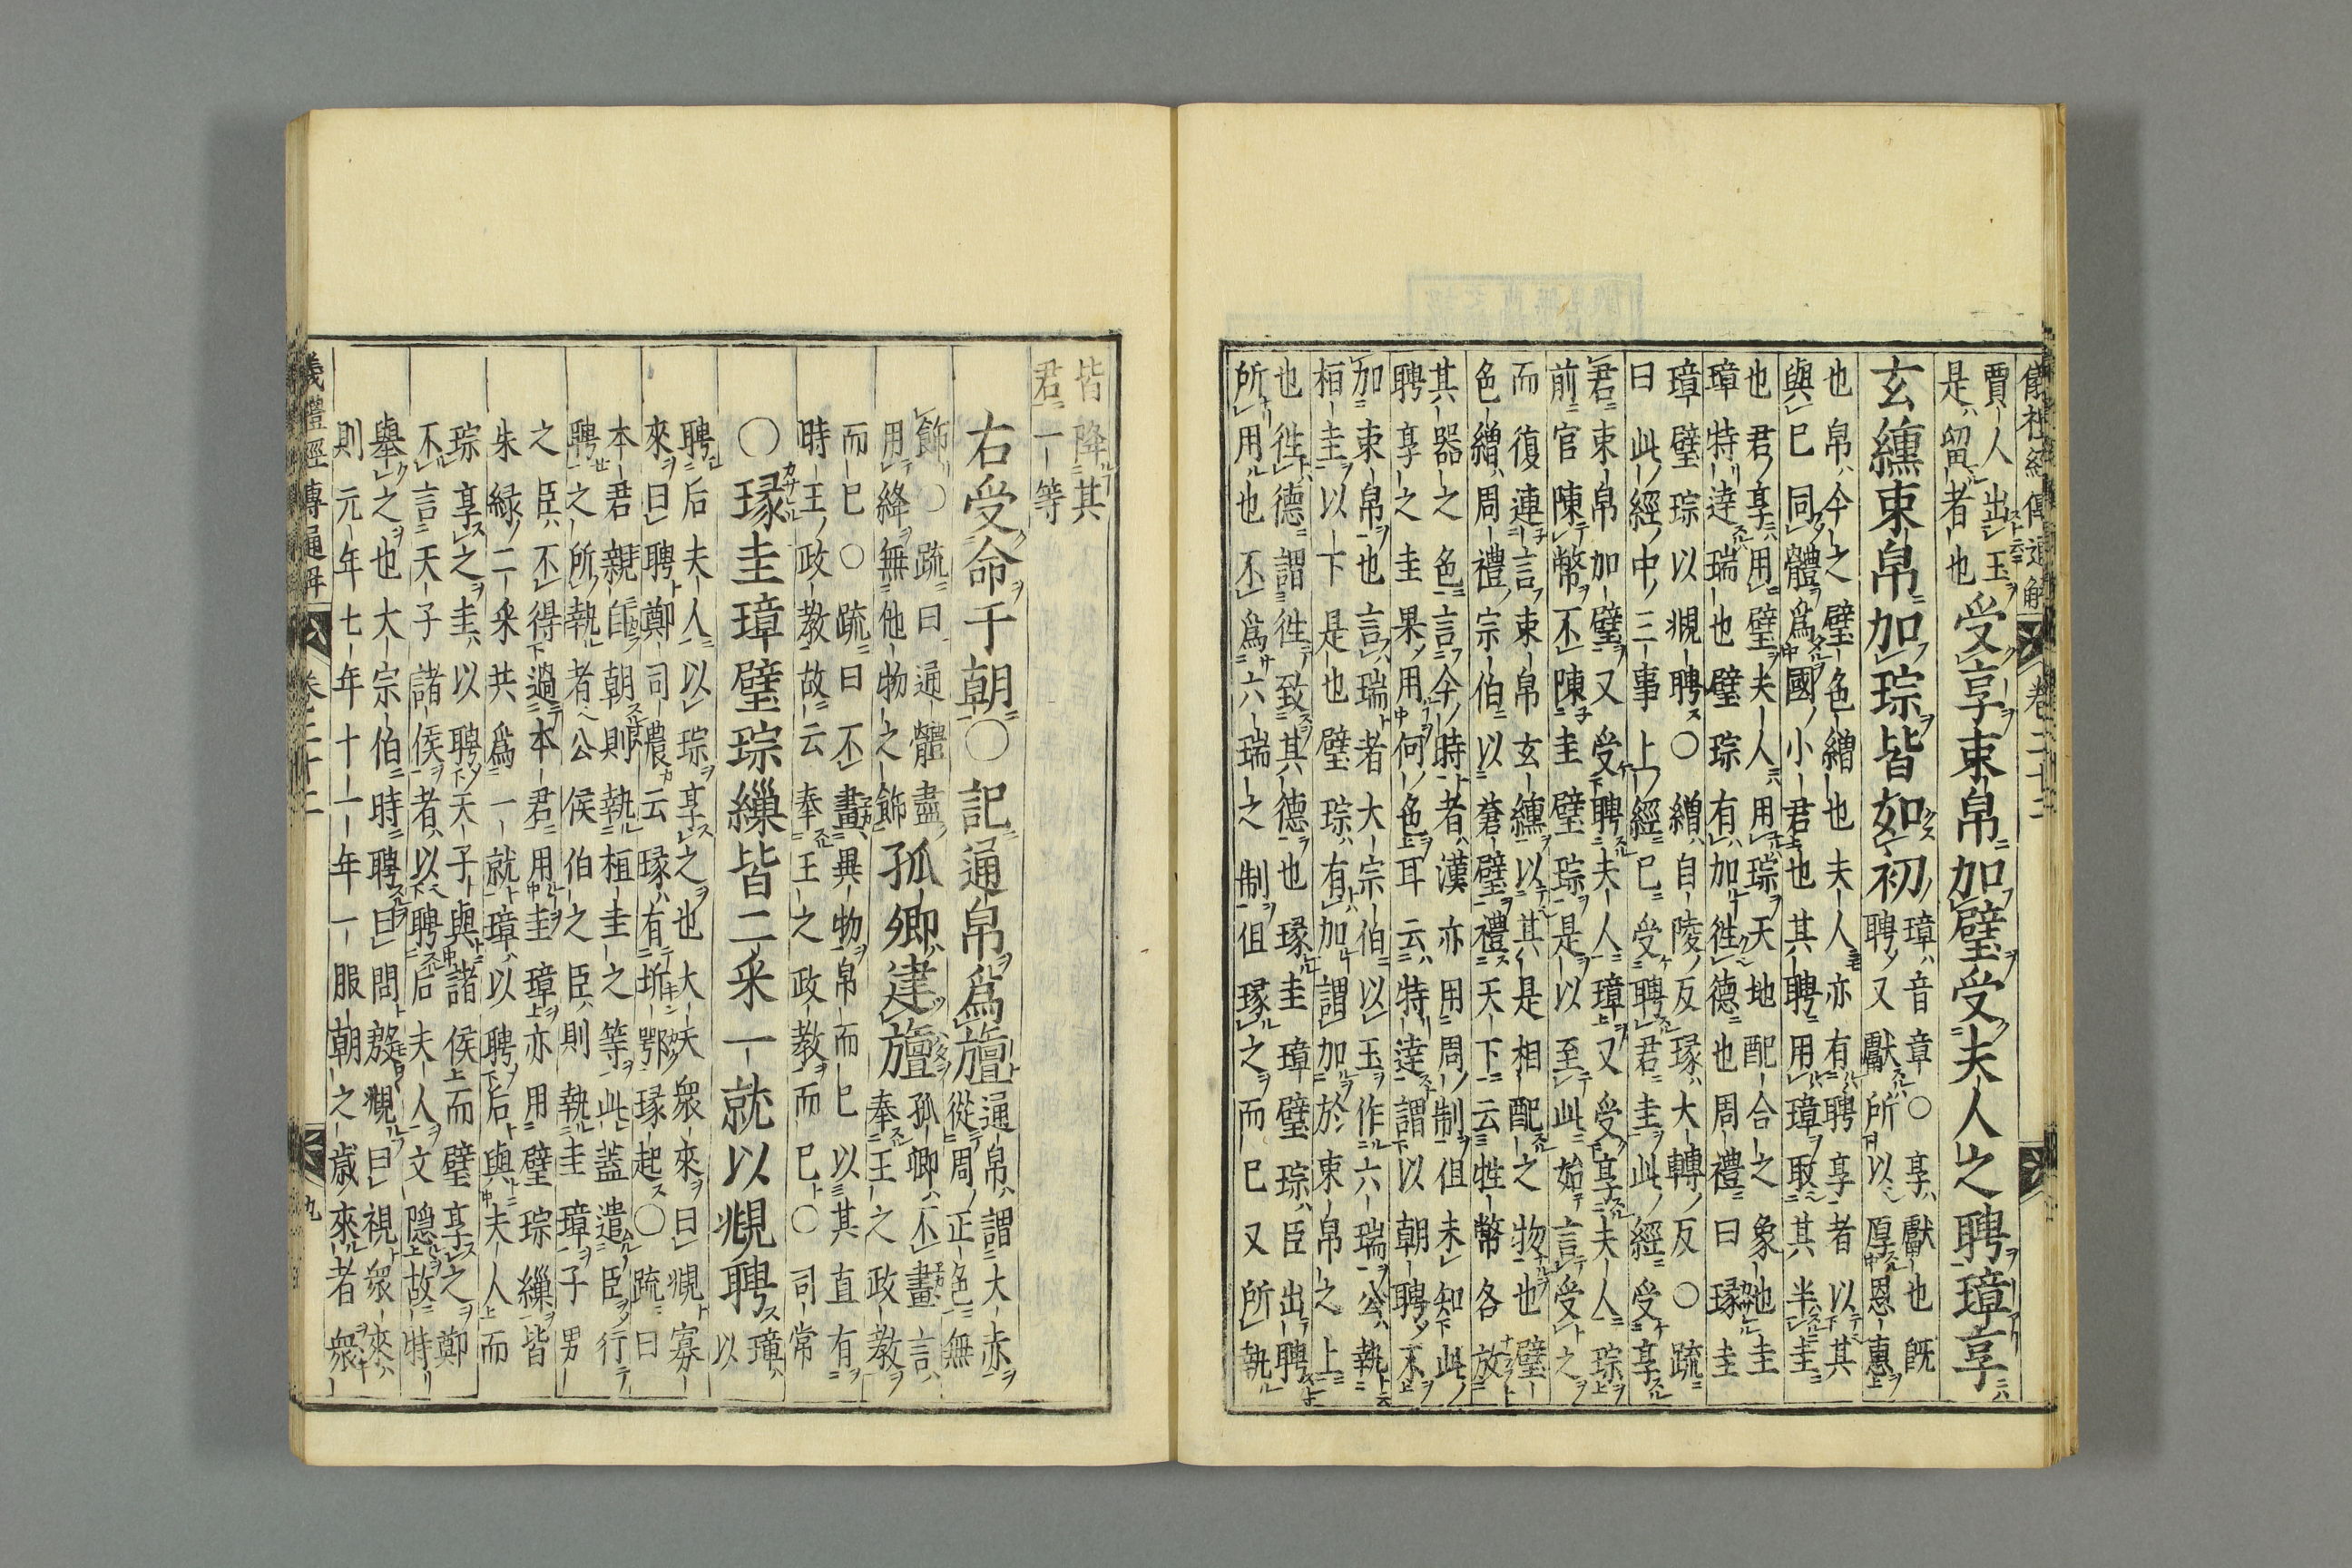 儀禮經傳通解　卷二十二
賈人出玉
是留者也
受享束帛加璧受夫人之聘璋享
玄纁束帛加琮皆如初
璋音章○享獻也既
聘又獻所以厚恩惠
也帛今之璧色繒也夫人亦有聘享者以其
與已同體爲國小君也其聘用璋取其半圭
也君享用璧夫人用琮天地配合之象也圭
璋特達瑞也璧琮有加徃德也周禮曰瑑圭
璋璧琮以覜聘○繒自陵反瑑大轉反○疏
曰此經中三事上經已受聘君圭此經受享
君束帛加璧又受聘夫人璋又受享夫人琮
前官陳幣不陳圭璧琮是以至此始言受之
而復連言束帛玄纁以其是相配之物也璧
色繒周禮宗伯以蒼璧禮天下云牲幣各放
其器之色言今時者漢亦用周制但未知此
聘享之圭果用何色耳云特達謂以朝聘不
加束帛也言瑞者大宗伯以玉作六瑞公執
桓圭以下是也璧琮有加謂加於束帛之上
也徃德謂徃致其德也瑑圭璋璧琮臣出聘
所用也不爲六瑞之制但瑑之而已又所執
皆降其
君一等
右受命于朝○記通帛爲旜
通帛謂大赤
從周正色無
飾○疏曰通體盡
用絳無他物之飾
孤卿建旜
孤卿不畫言
奉王之政教
而已○疏曰不畫異物帛而已以其直有
時王政教故云奉王之政教而已○司常
○瑑圭璋璧琮繅皆二采一就以覜聘
璋
以
聘后夫人以琮享之也大夫衆來曰覜寡
來曰聘鄭司農云瑑有圻鄂瑑起○疏曰
本君親自朝則執桓圭之等此蓋遣臣行
聘之所執者公侯伯之臣則執圭璋子男
之臣不得過本君用圭璋亦用璧琮繅皆
朱緑二采共爲一就璋以聘后與夫人而
琮享之圭以聘天子與諸侯而璧享之鄭
不言天子諸侯者以聘后夫人文隱故特
舉之也大宗伯時聘曰問殷覜曰視衆來
則元年七年十一年一服朝之歲來者衆
儀禮經傳通解　卷二十二　九